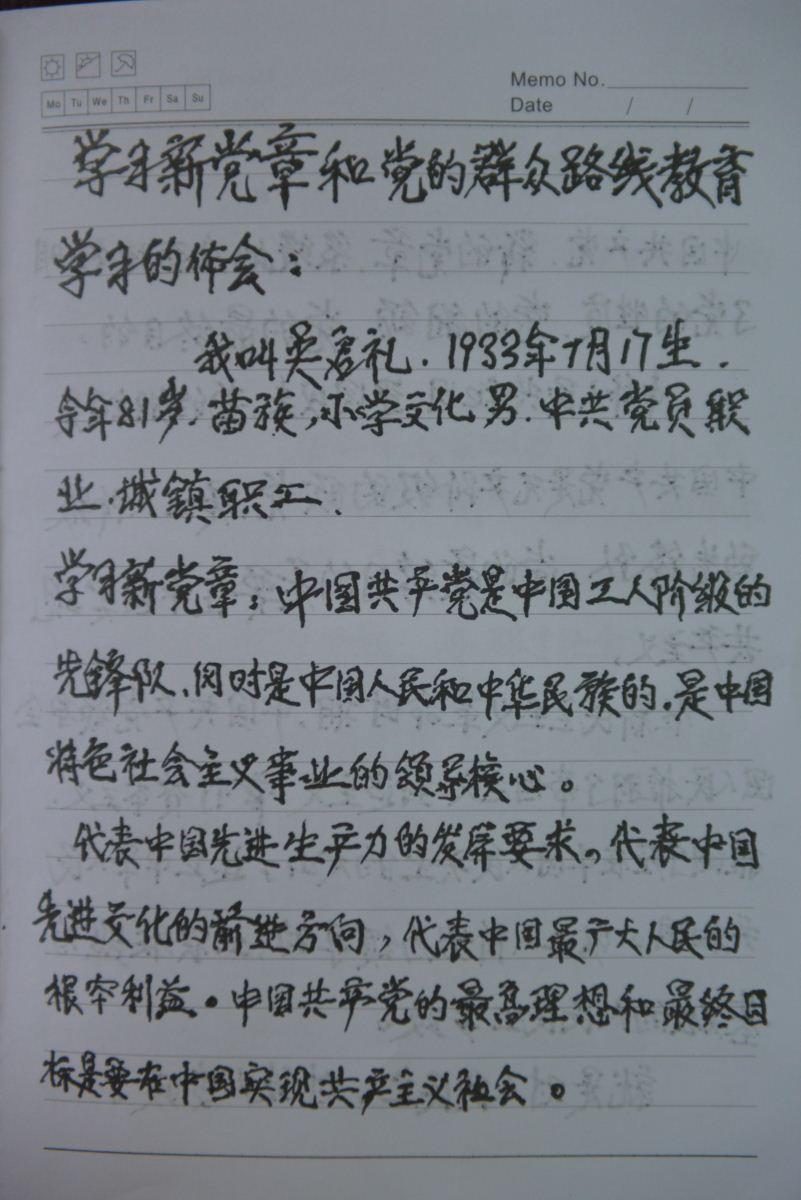 Memo No.
Mo Tu We Th Fr Sa Su
Date / /
学习新党章和党的群众路线教育
学习的体会：
我叫吴启礼．1933年7月17生．
今年81岁．苗族，小学文化男．中共党员职
业．城镇职工．
学习新党章：中国共产党是中国工人阶级的
先锋队、同时是中国人民和中华民族的．是中国
特色社会主义事业的领导核心。
代表中国先进生产力的发展要求。代表中国
先进文化的前进方向，代表中国最广大人民的
根本利益。中国共产党的最高理想和最终目
标是要在中国实现共产主义社会。